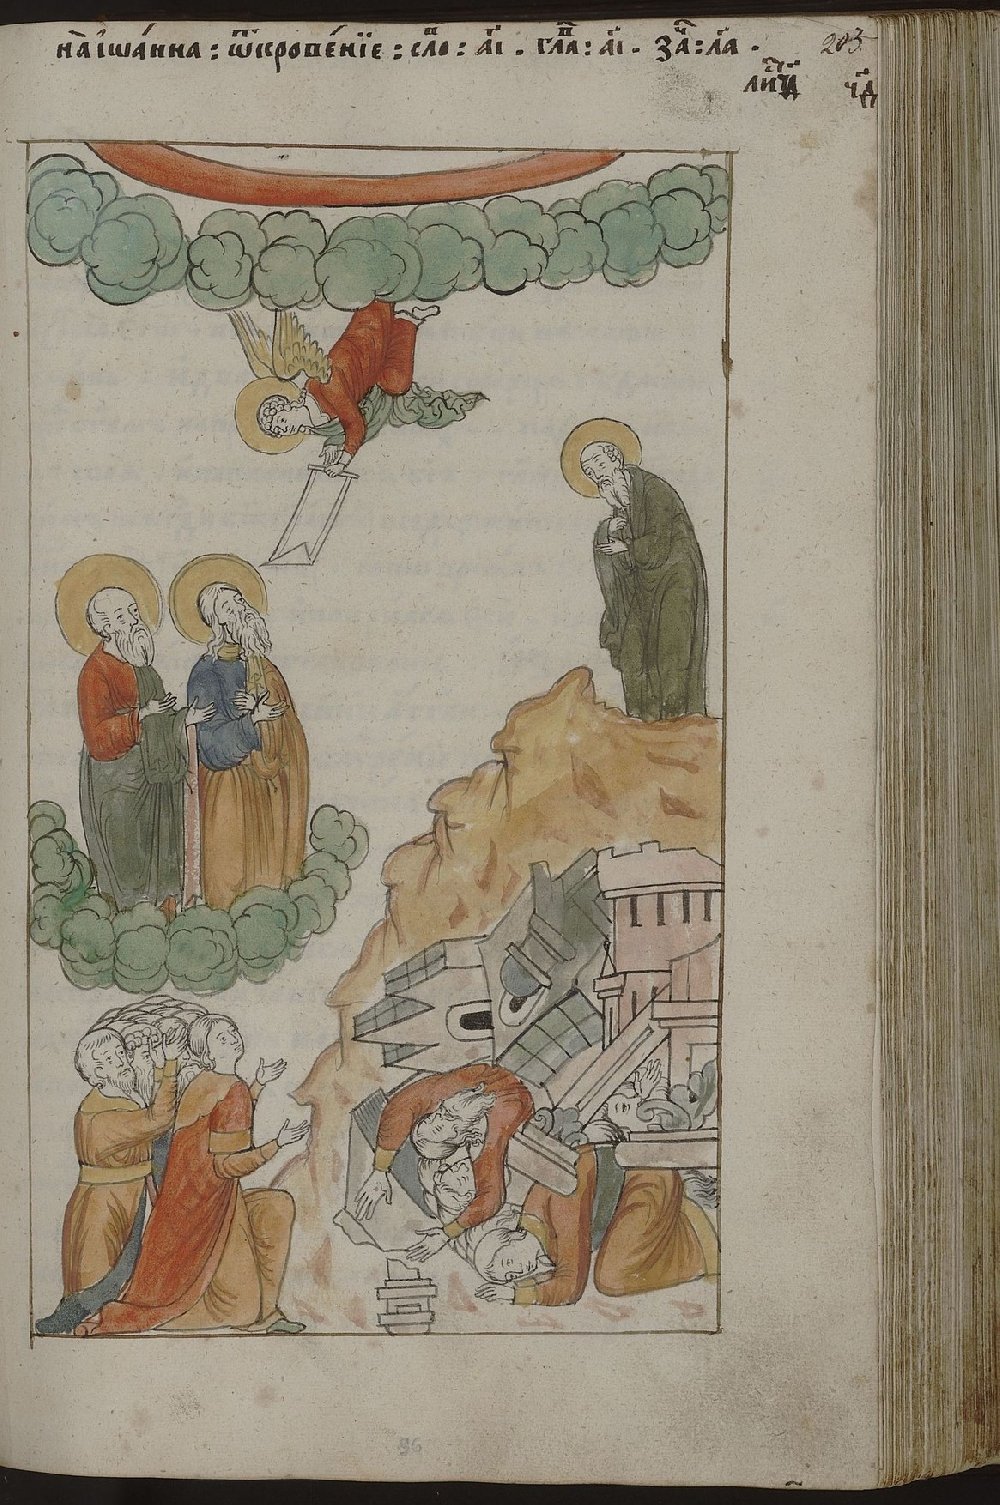 на іѡа́нна : ѿкрове́нїе : сло : а҃і . гла : а҃і . за : л҃а .
203
ли ч҃д
96